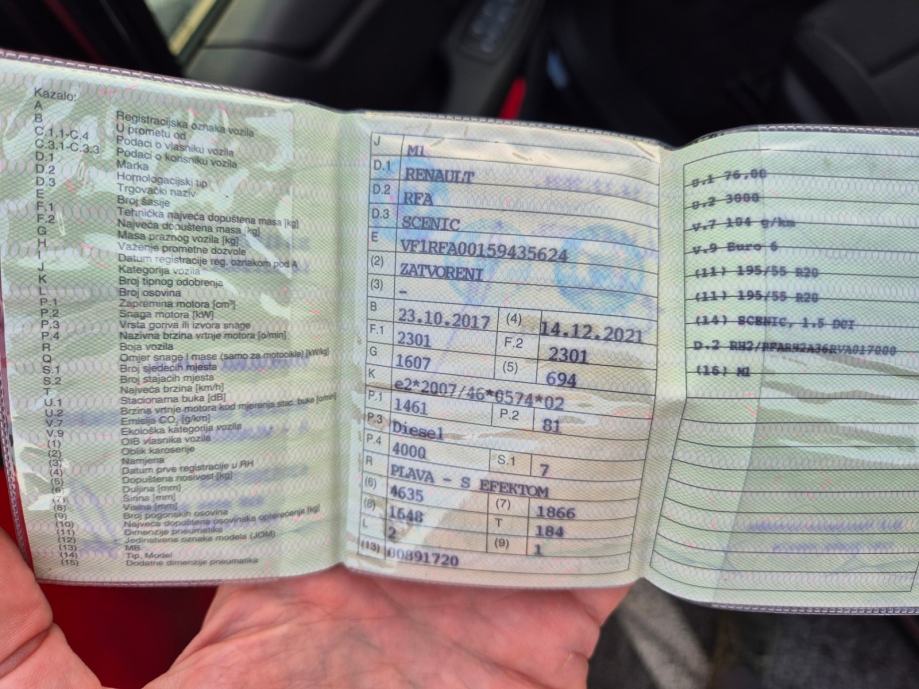 Kazalo:
A Registracijska oznaka vozila
B U prometu od
C.1.1-C.4 Podaci o vlasniku vozila
C.3.1-C.3.3 Podaci o korisniku vozila
D.1 Marka
D.2 Homologacijski tip
D.3 Trgovački naziv
E Broj šasije
F.1 Tehnička najveća dopuštena masa [kg]
F.2 Najveća dopuštena masa [kg]
G Masa praznog vozila [kg]
H Važenje prometne dozvole
I Datum registracije reg. oznakom pod A
J Kategorija vozila
K Broj tipnog odobrenja
L Broj osovina
P.1 Zapremina motora [cm³]
P.2 Snaga motora [kW]
P.3 Vrsta goriva ili izvora snage
P.4 Nazivna brzina vrtnje motora [o/min]
R Boja vozila
Q Omjer snage i mase (samo za motocikle) [kW/kg]
S.1 Broj sjedećih mjesta
S.2 Broj stajaćih mjesta
T Najveća brzina [km/h]
U.1 Stacionarna buka [dB]
U.2 Brzina vrtnje motora kod mjerenja stac. buke [o/min]
V.7 Emisija CO₂ [g/km]
V.9 Ekološka kategorija vozila
(1) OIB vlasnika vozila
(2) Oblik karoserije
(3) Namjena
(4) Datum prve registracije u RH
(5) Dopuštena nosivost [kg]
(6) Duljina [mm]
(7) Širina [mm]
(8) Visina [mm]
(9) Broj pogonskih osovina
(10) Najveća dopuštena osovinska opterećenja [kg]
(11) Dimenzije pneumatika
(12) Jedinstvena oznaka modela (JOM)
(13) MB
(14) Tip, Model
(15) Dodatne dimenzije pneumatika
J M1
D.1 RENAULT
D.2 RFA
D.3 SCENIC
E VF1RFA00159435624
(2) ZATVORENI
(3) –
B 23.10.2017 (4) 14.12.2021
F.1 2301 F.2 2301
G 1607 (5) 694
K e2*2007/46*0574*02
P.1 1461 P.2 81
P.3 Diesel
P.4 4000 S.1 7
R PLAVA - S EFEKTOM
(6) 4635 (7) 1866
(8) 1648 T 184
L 2 (9) 1
(13) 00891720
U.1 76,00
U.2 3000
V.7 104 g/km
V.9 Euro 6
(11) 195/55 R20
(11) 195/55 R20
(14) SCENIC, 1.5 DCI
(16) M1